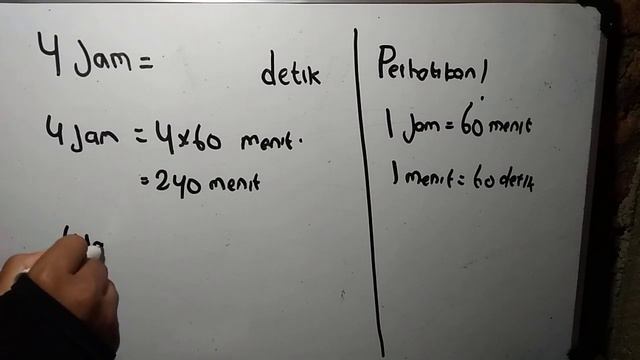 4 Jam = detik
4 Jam = 4x60 menit.
= 240 menit
Perhatikan!
1 Jam = 60 menit
1 menit = 60 detik